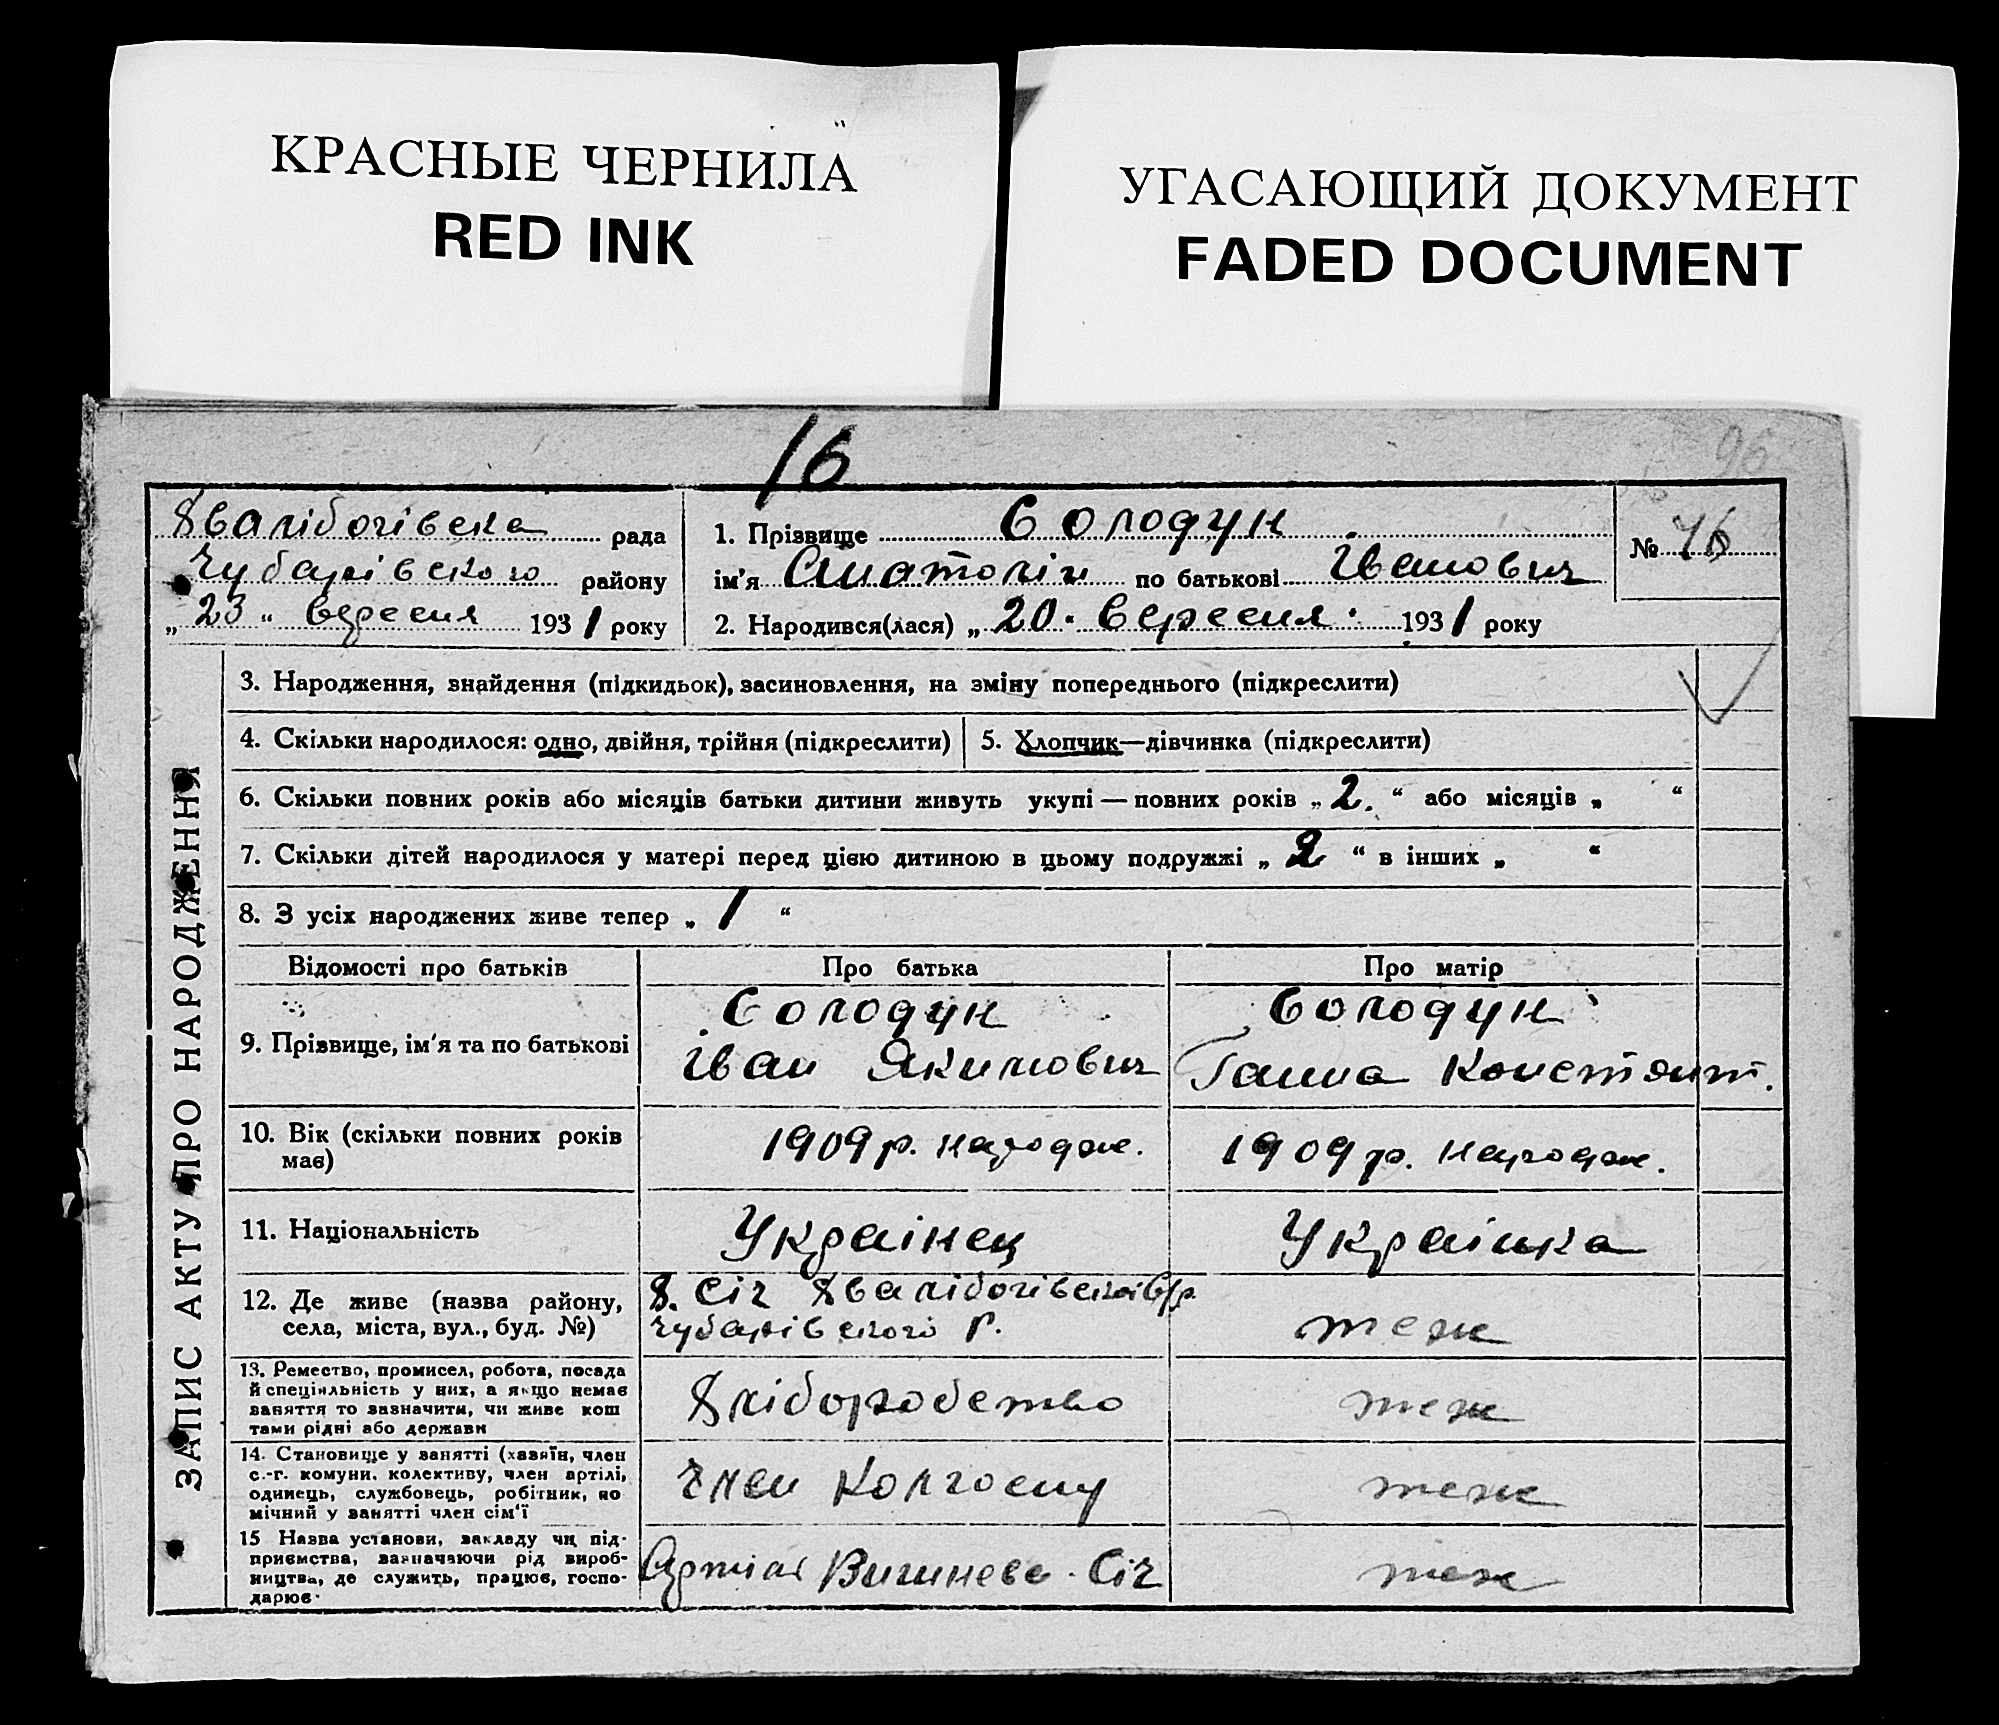 КРАСНЫЕ ЧЕРНИЛА
RED INK
УГАСАЮЩИЙ ДОКУМЕНТ
FADED DOCUMENT
16
96
Хвалібогівська рада
Чубарівського району
„ 23 “ вересня 1931 року
1. Прізвище Солодун
ім'я Анатолій по батькові Іванович
2. Народився(лася) „ 20. вересня 1931 року
№
ЗАПИС АКТУ ПРО НАРОДЖЕННЯ
3. Народження, знайдення (підкидьок), засиновлення, на зміну попереднього (підкреслити)
4. Скільки народилося: одно, двійня, трійня (підкреслити)
5. Хлопчик—дівчинка (підкреслити)
6. Скільки повних років або місяців батьки дитини живуть укупі — повних років „ 2. “ або місяців „ “
7. Скільки дітей народилося у матері перед цією дитиною в цьому подружжі „ 2 “ в інших „ “
8. З усіх народжених живе тепер „ 1 “
Відомості про батьків Про батька Про матір
9. Прізвище, ім'я та по батькові
Солодун
Іван Якимович
Солодун
Ганна Констянт.
10. Вік (скільки повних років
має)
1909 р. народж.
1909 р. народж.
11. Національність Украінец Украінка
12. Де живе (назва району,
села, міста, вул., буд. №)
Х. Січ Хвалібогівської С/р.
Чубарівського р.
теж
13. Ремество, промисел, робота, посада
й спеціяльність у них, а якщо немає
заняття то зазначити, чи живе кош
тами рідні або держави
Хліборобство
теж
14. Становище у занятті (хазяїн, член
с.-г. комуни, колективу, член артілі,
одинець, службовець, робітник, по
мічний у занятті член сім'ї
Член Колгоспу
теж
15 Назва установи, закладу чи під-
приємства, зазначаючи рід вироб-
ництва, де служить, працює, госпо-
дарює.
Артіль Вишнева Січ
теж